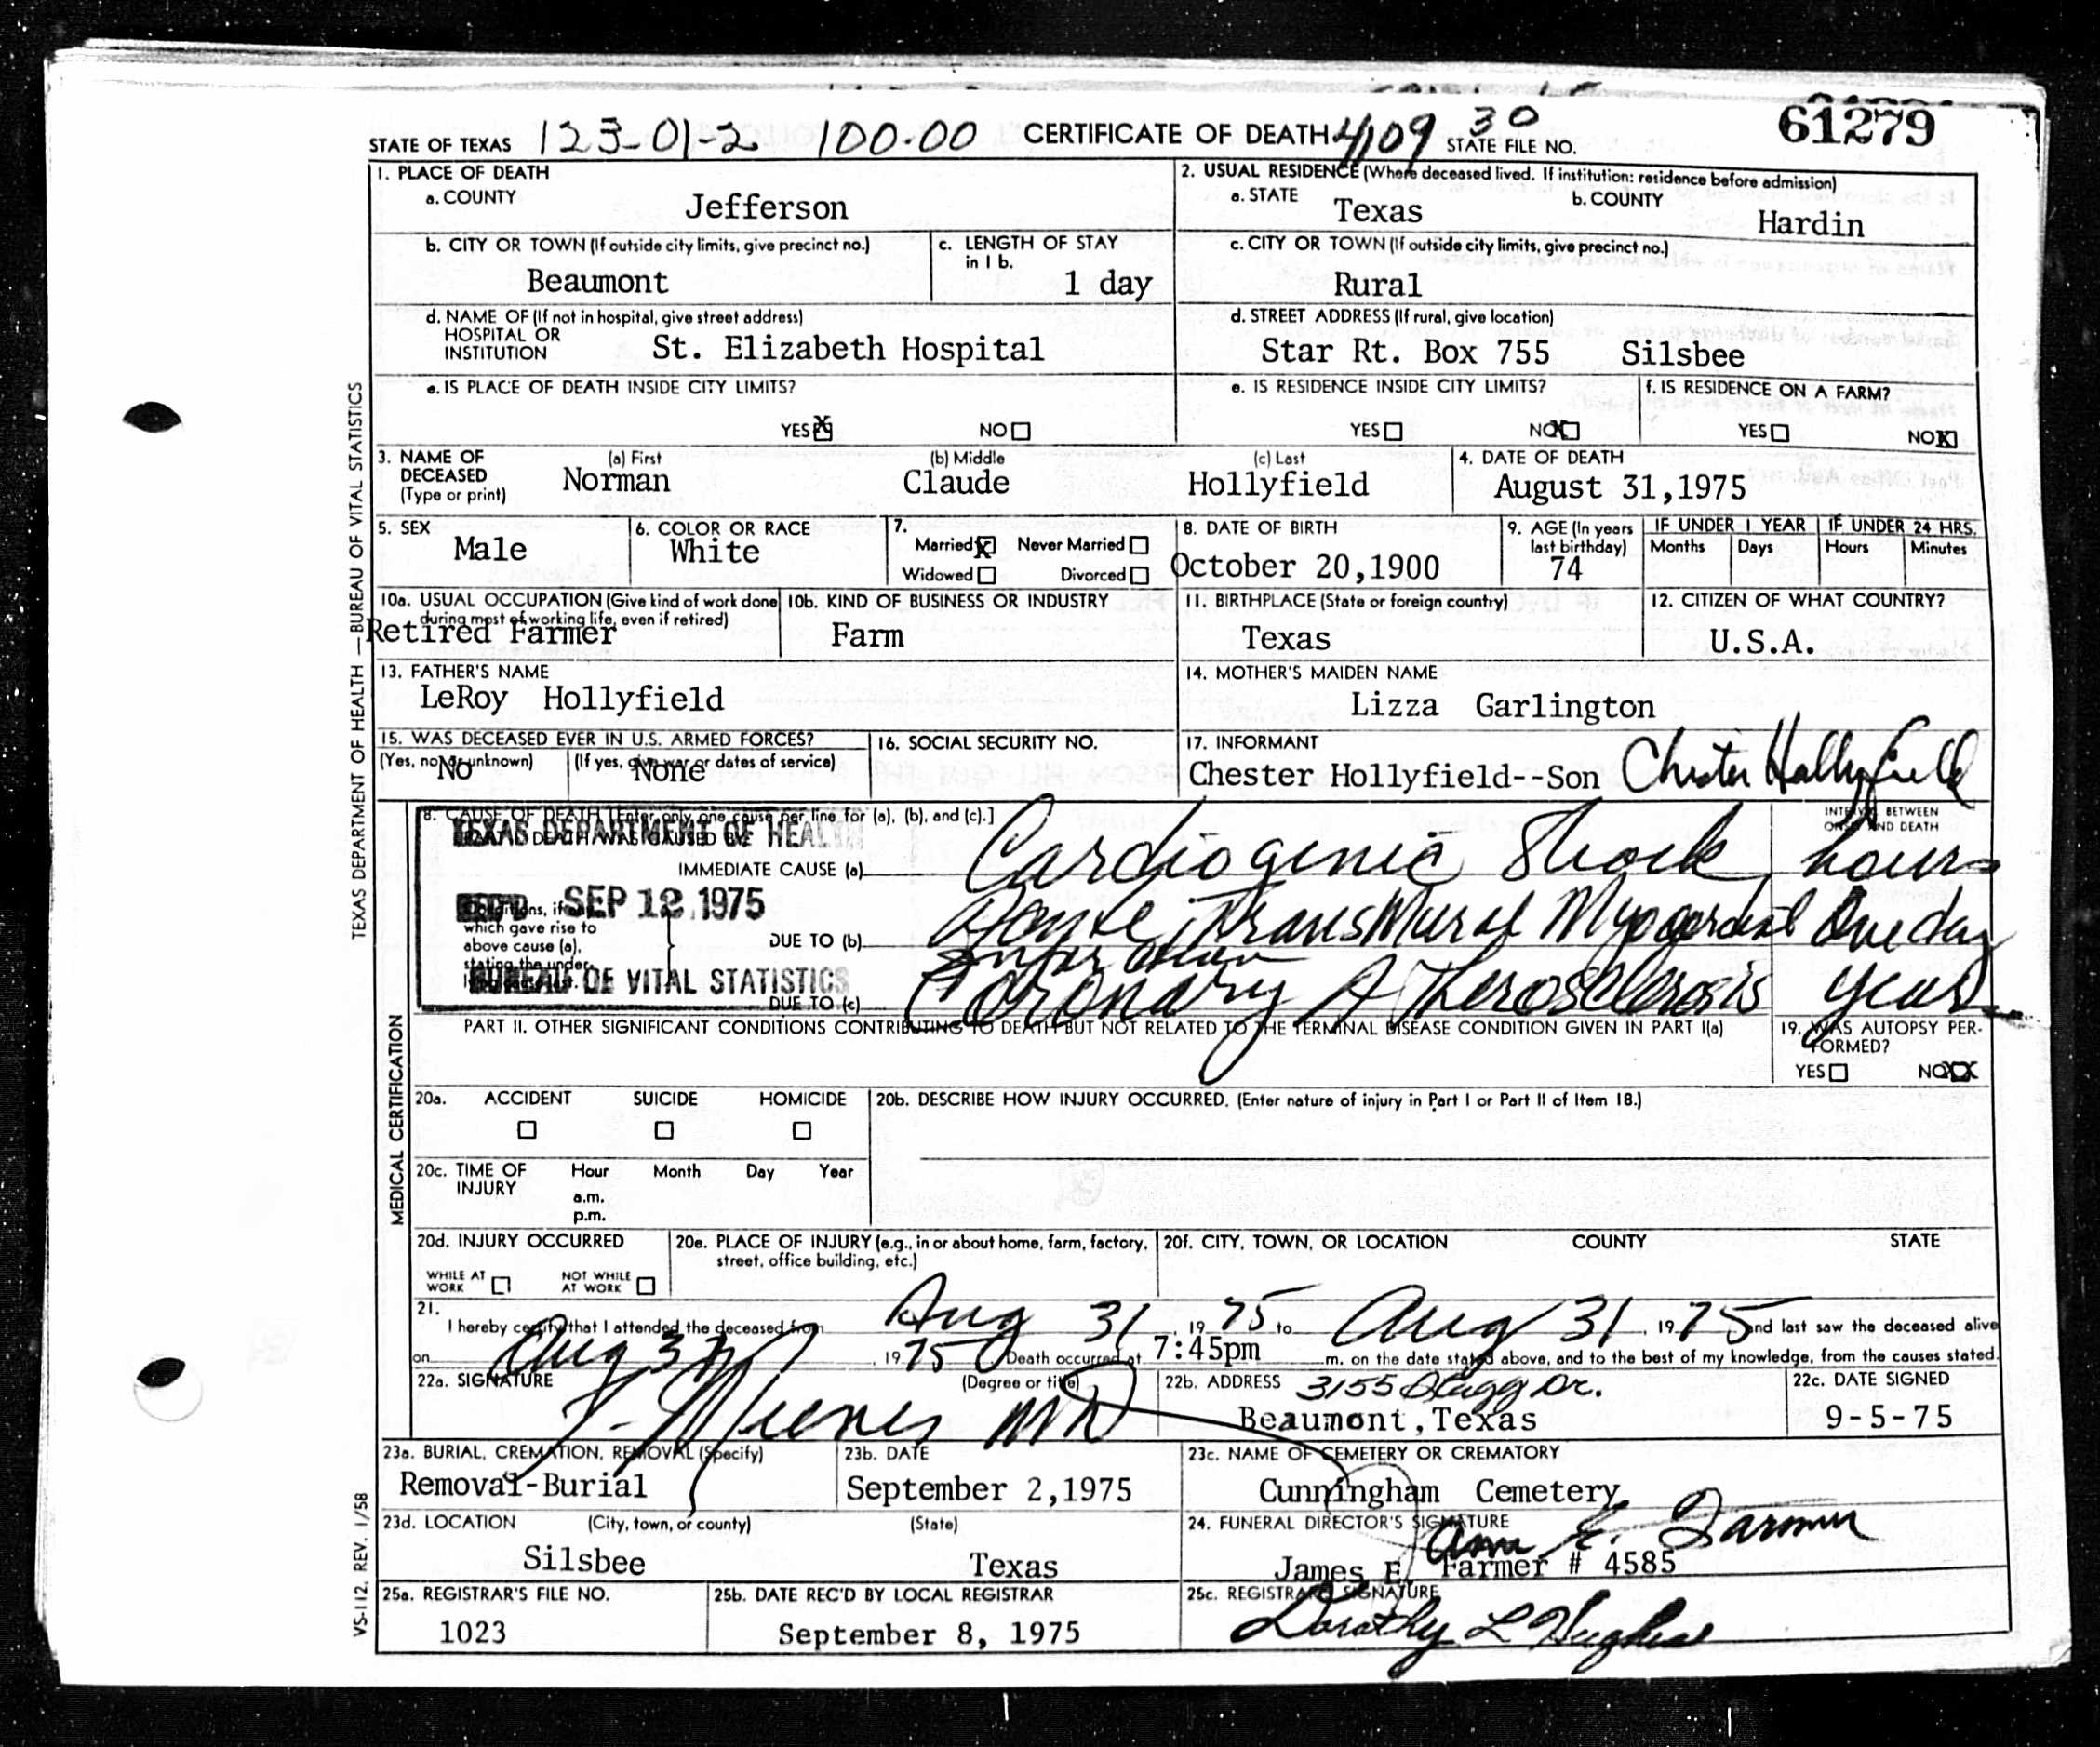 STATE OF TEXAS 123-01-2 100.00 CERTIFICATE OF DEATH 4109 30 STATE FILE NO. 61279
1. PLACE OF DEATH
a. COUNTY
Jefferson
2. USUAL RESIDENCE (Where deceased lived. If institution: residence before admission)
a. STATE Texas b. COUNTY Hardin
b. CITY OR TOWN (If outside city limits, give precinct no.)
Beaumont
c. LENGTH OF STAY in 1 b.
1 day
c. CITY OR TOWN (If outside city limits, give precinct no.)
Rural
d. NAME OF (If not in hospital, give street address)
HOSPITAL OR
INSTITUTION St. Elizabeth Hospital
d. STREET ADDRESS (If rural, give location)
Star Rt. Box 755 Silsbee
e. IS PLACE OF DEATH INSIDE CITY LIMITS?
YES X NO
e. IS RESIDENCE INSIDE CITY LIMITS?
YES NO X
f. IS RESIDENCE ON A FARM?
YES NO X
3. NAME OF DECEASED (Type or print)
(a) First (b) Middle (c) Last
Norman Claude Hollyfield
4. DATE OF DEATH
August 31,1975
5. SEX
Male
6. COLOR OR RACE
White
7.
Married X Never Married
Widowed Divorced
8. DATE OF BIRTH
October 20,1900
9. AGE (In years last birthday)
74
IF UNDER 1 YEAR IF UNDER 24 HRS.
Months Days Hours Minutes
10a. USUAL OCCUPATION (Give kind of work done during most of working life, even if retired)
Retired Farmer
10b. KIND OF BUSINESS OR INDUSTRY
Farm
11. BIRTHPLACE (State or foreign country)
Texas
12. CITIZEN OF WHAT COUNTRY?
U.S.A.
13. FATHER'S NAME
LeRoy Hollyfield
14. MOTHER'S MAIDEN NAME
Lizza Garlington
15. WAS DECEASED EVER IN U.S. ARMED FORCES?
(Yes, no, or unknown) (If yes, give war or dates of service)
No None
16. SOCIAL SECURITY NO.
17. INFORMANT
Chester Hollyfield--Son Chester Hollyfield
18. CAUSE OF DEATH [Enter only one cause per line for (a), (b), and (c).]
TEXAS DEPARTMENT OF HEALTH
PART I. DEATH WAS CAUSED BY
INTERVAL BETWEEN ONSET AND DEATH
IMMEDIATE CAUSE (a) Cardiogenic Shock hours
REC'D SEP 12 1975
Conditions, if any,
which gave rise to
above cause (a),
stating the under-
DUE TO (b) Acute TransMural Myocardial One day
Infarction
BUREAU OF VITAL STATISTICS
DUE TO (c) Coronary Atherosclerosis years
PART II. OTHER SIGNIFICANT CONDITIONS CONTRIBUTING TO DEATH BUT NOT RELATED TO THE TERMINAL DISEASE CONDITION GIVEN IN PART I(a)
19. WAS AUTOPSY PER-
FORMED?
YES NO XX
20a. ACCIDENT SUICIDE HOMICIDE
20b. DESCRIBE HOW INJURY OCCURRED. (Enter nature of injury in Part I or Part II of Item 18.)
20c. TIME OF INJURY
Hour Month Day Year
a.m.
p.m.
20d. INJURY OCCURRED
WHILE AT WORK NOT WHILE AT WORK
20e. PLACE OF INJURY (e.g., in or about home, farm, factory,
street, office building, etc.)
20f. CITY, TOWN, OR LOCATION COUNTY STATE
21.
I hereby certify that I attended the deceased from Aug 31, 1975 to Aug 31, 1975 and last saw the deceased alive
on Aug 31, 1975 Death occurred at 7:45pm m. on the date stated above, and to the best of my knowledge, from the causes stated.
22a. SIGNATURE (Degree or title)
MD
22b. ADDRESS 3155 Stagg Dr.
Beaumont,Texas
22c. DATE SIGNED
9-5-75
23a. BURIAL, CREMATION, REMOVAL (Specify)
Removal-Burial
23b. DATE
September 2,1975
23c. NAME OF CEMETERY OR CREMATORY
Cunningham Cemetery
23d. LOCATION (City, town, or county) (State)
Silsbee Texas
24. FUNERAL DIRECTOR'S SIGNATURE
James E. Farmer # 4585
25a. REGISTRAR'S FILE NO.
1023
25b. DATE REC'D BY LOCAL REGISTRAR
September 8, 1975
25c. REGISTRAR'S SIGNATURE
Dorothy L Hughes
TEXAS DEPARTMENT OF HEALTH — BUREAU OF VITAL STATISTICS
MEDICAL CERTIFICATION
VS-112, REV. 1/58